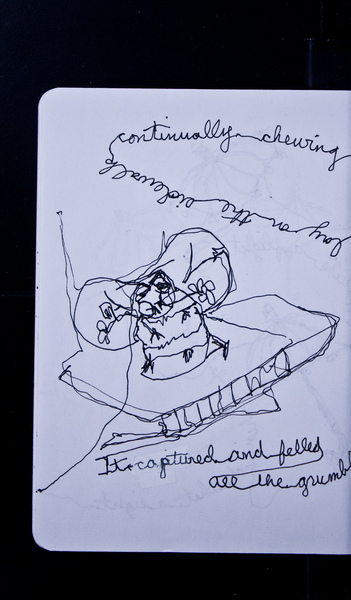 continually chewing
lay on the sidewalk
It captured and felled
all the grumbl